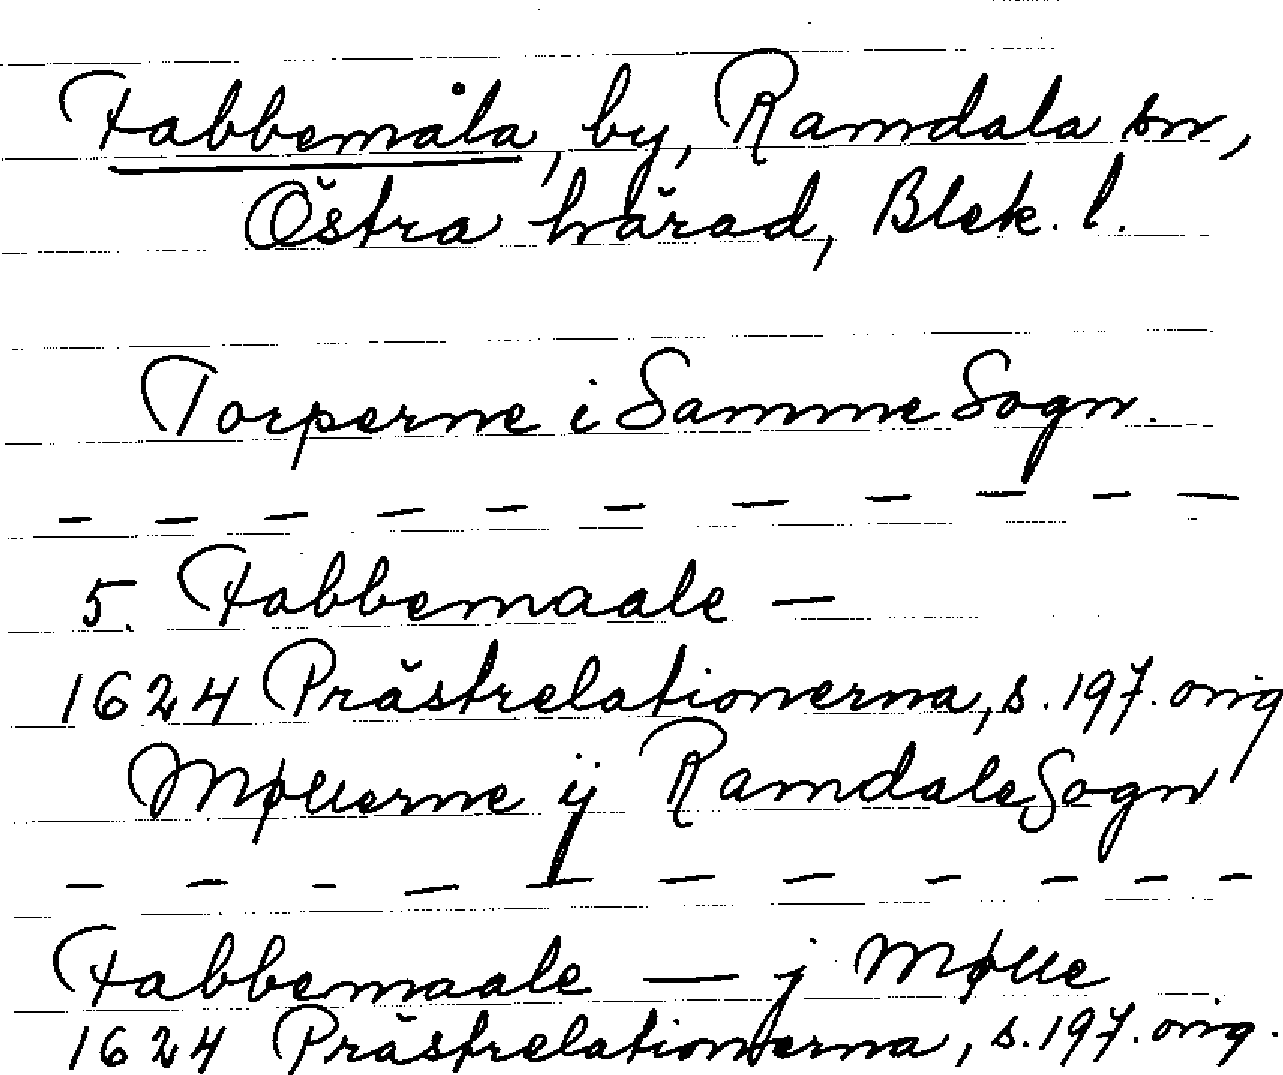 Fabbemåla, by, Ramdala sn,
Östra härad, Blek. l.
Torperne i Samme Sogn.
– – – – – – – – – – –
5. Fabbemaale —
1624 Prästrelationerna, s. 197. orig
Møllerne ij Ramdale Sogn
– – – – – – – – – – –
Fabbemaale — j Mølle
1624 Prästrelationerna, s. 197. orig.